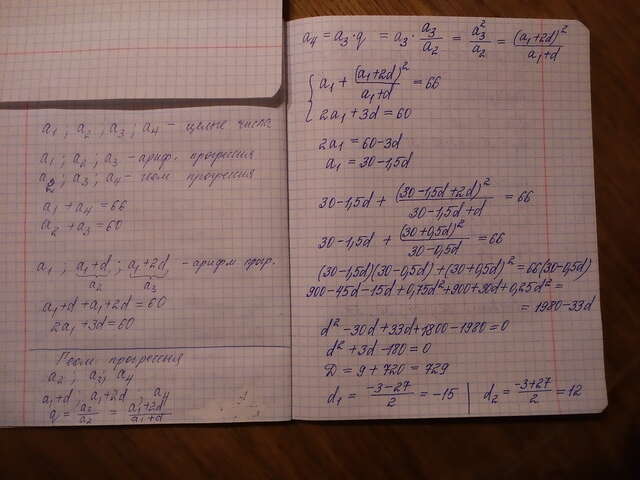 a₁ ; a₂ ; a₃ ; a₄ - целые числа
a₁ ; a₂ ; a₃ - ариф. прогрессия
a₂ ; a₃ ; a₄ - геом прогрессия
a₁ + a₄ = 66
a₂ + a₃ = 60
a₁ ; a₁+d ; a₁+2d - арифм прогр.
a₂ a₃
a₁+d + a₁+2d = 60
2a₁ + 3d = 60
Геом прогрессия
a₂ ; a₃ ; a₄
a₁+d , a₁+2d , a₄
q = a₃/a₂ = (a₁+2d)/(a₁+d)
a₄ = a₃·q = a₃· a₃/a₂ = a₃²/a₂ = (a₁+2d)²/(a₁+d)
{ a₁ + (a₁+2d)²/(a₁+d) = 66
2a₁ + 3d = 60
2a₁ = 60-3d
a₁ = 30-1,5d
30-1,5d + (30-1,5d+2d)²/(30-1,5d+d) = 66
30-1,5d + (30+0,5d)²/(30-0,5d) = 66
(30-1,5d)(30-0,5d)+(30+0,5d)² = 66(30-0,5d)
900-45d-15d+0,75d²+900+30d+0,25d² =
= 1980-33d
d²-30d+33d+1800-1980=0
d²+3d-180=0
D = 9+720 = 729
d₁ = (-3-27)/2 = -15 | d₂ = (-3+27)/2 = 12